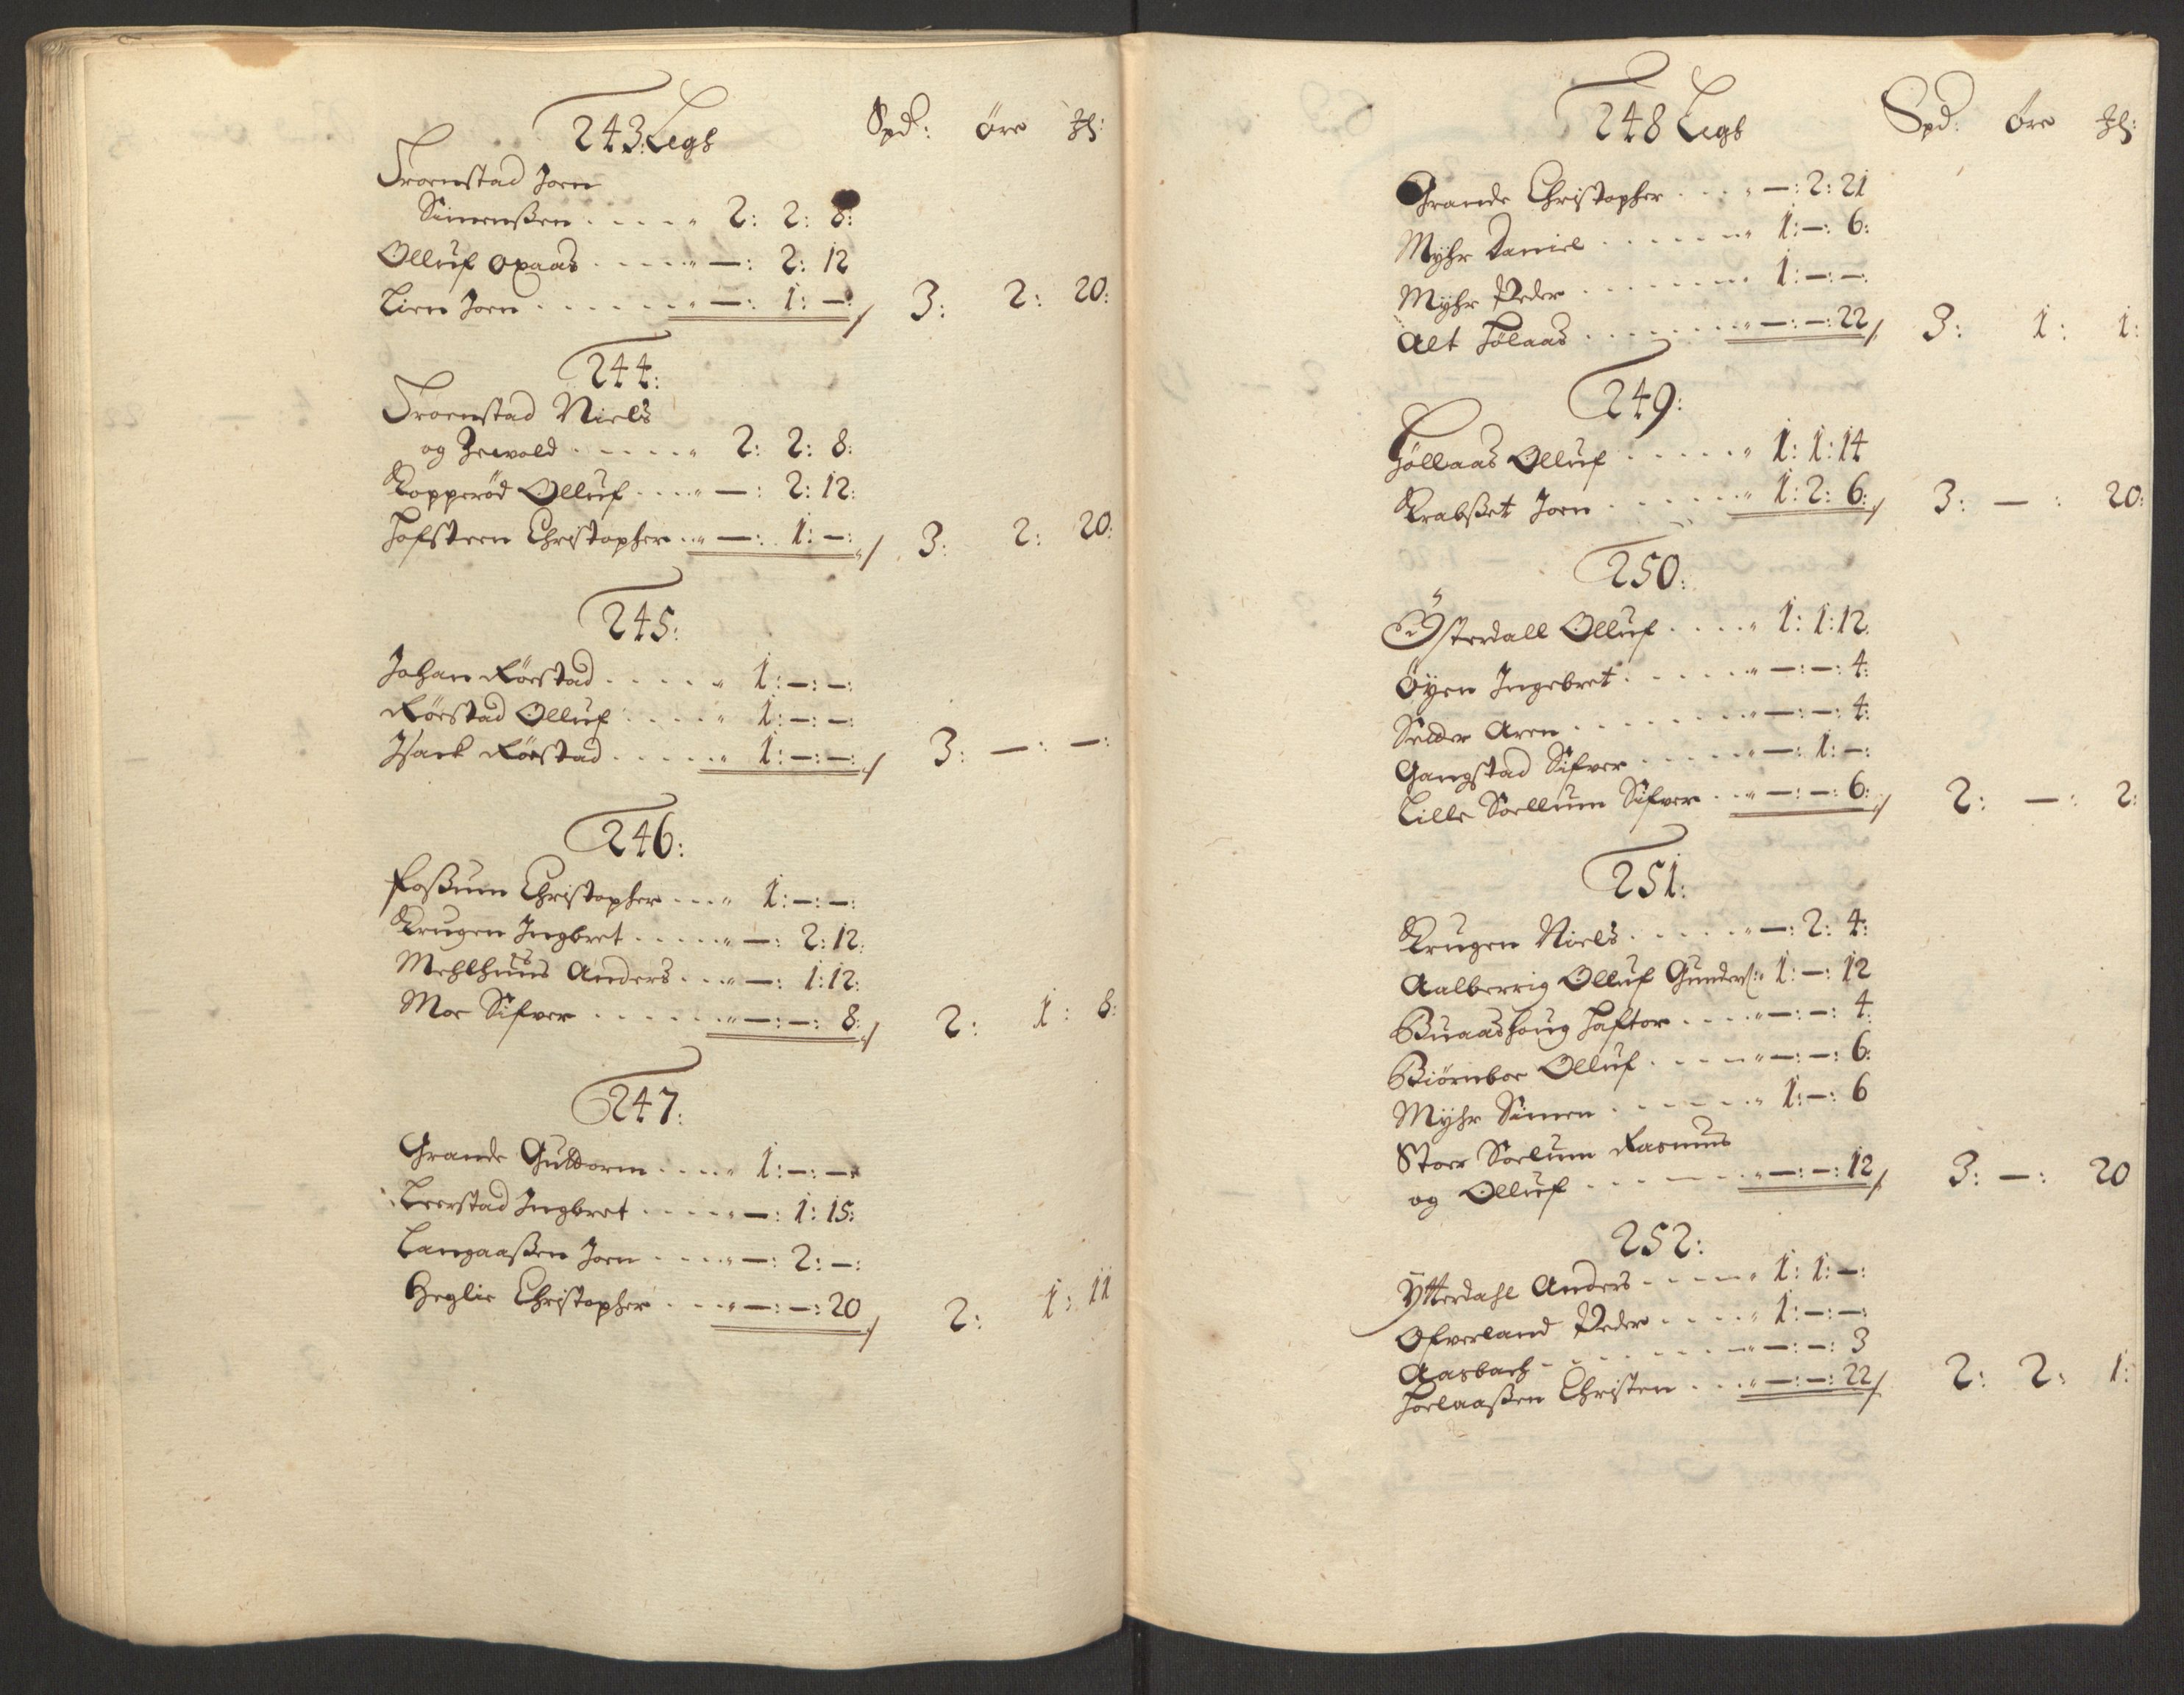 243 Legs Spd: öre
Troenstad Joen
Simensßen . . . . . 2: 2: 8:
Olluf Opaas . . . . . —: 2: 12
Lien Joen . . . . . —: 1: —: 3: 2: 20:
244:
Troenstad Niels
og . . . . . 2: 2: 8:
Kopperöd Olluf . . . . —: 2: 12:
Hofsteen Christopher . . —: 1: —: 3: 2: 20:
245:
Johan Röestad . . . . . 1: —: —:
Röestad Olluf . . . . . 1: —: —:
Isack Röestad . . . . . 1: —: —: 3: —: —:
246:
Foßum Christopher . . . 1: —: —:
Krugen Ingbret . . . . . —: 2: 12:
Mehlhuus Anders . . . —: 1: 12:
Moe Sifver . . . . . —: —: 8: 2: 1: 8:
247:
Grande Guttorm . . . . 1: —: —:
Leerstad Ingbret . . . . —: 1: 15:
Langaaßen Joen . . . . —: 2: —:
Heglie Christopher . . . —: —: 20 2: 1: 11
248 Legs Spd: öre
Grande Christopher . . . —: 2: 21
Myhr Daniel . . . . . 1: —: 6:
Myhr Peder . . . . . 1: —: —:
Alt Hölaas . . . . . —: —: 22 3: 1: 1:
249:
Höllaas Olluf . . . . . 1: 1: 14
Krabßet Joen . . . . . 1: 2: 6: 3: —: 20:
250:
Österdall Olluf . . . . 1: 1: 12
Öyen Ingebret . . . . . —: —: 4:
Aren . . . . . —: —: 4:
Gangstad Sifver . . . . —: 1: —:
Lille Soellum Sifver . . —: —: 6: 2: —: 2:
251:
Krugen Niels . . . . . —: 2: 4:
Aalberrig Olluf Gunders: 1: —: 12
Buaashoug Haftor . . . . —: —: 4:
Biörnboe Olluf . . . . —: —: 6:
Myhr Simen . . . . . 1: —: 6
Stoer Soelum Rasmus
og Olluf . . . . . —: —: 12 3: —: 20
252:
Ytterdahl Anders . . . . 1: 1: —:
Ofverland Peder . . . . 1: —: —:
Aasbach . . . . . —: —: 3
Hoelaaßen Christen . . . —: —: 22 2: 2: 1: